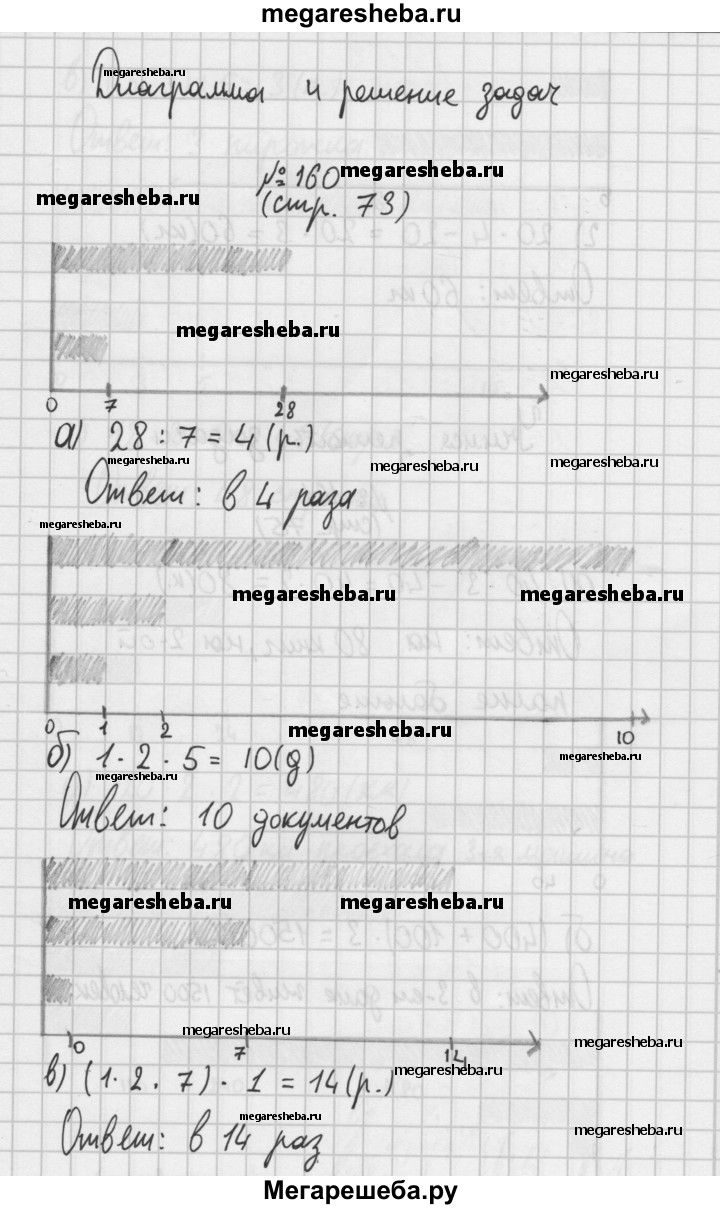 megaresheba.ru
megaresheba.ru
Диаграмма и решение задач
№160 megaresheba.ru
megaresheba.ru (стр. 73)
megaresheba.ru
megaresheba.ru
0 7 28
а) 28 : 7 = 4 (р.)
megaresheba.ru megaresheba.ru megaresheba.ru
Ответ: в 4 раза
megaresheba.ru
megaresheba.ru megaresheba.ru
0 1 2 10
megaresheba.ru
б) 1 · 2 · 5 = 10(д)
megaresheba.ru
megaresheba.ru
Ответ: 10 документов
megaresheba.ru megaresheba.ru
megaresheba.ru
megaresheba.ru
0 7 14
в) (1 · 2 · 7) · 1 = 14 (р.)
megaresheba.ru
megaresheba.ru
Ответ: в 14 раз
megaresheba.ru
Мегарешеба.ру